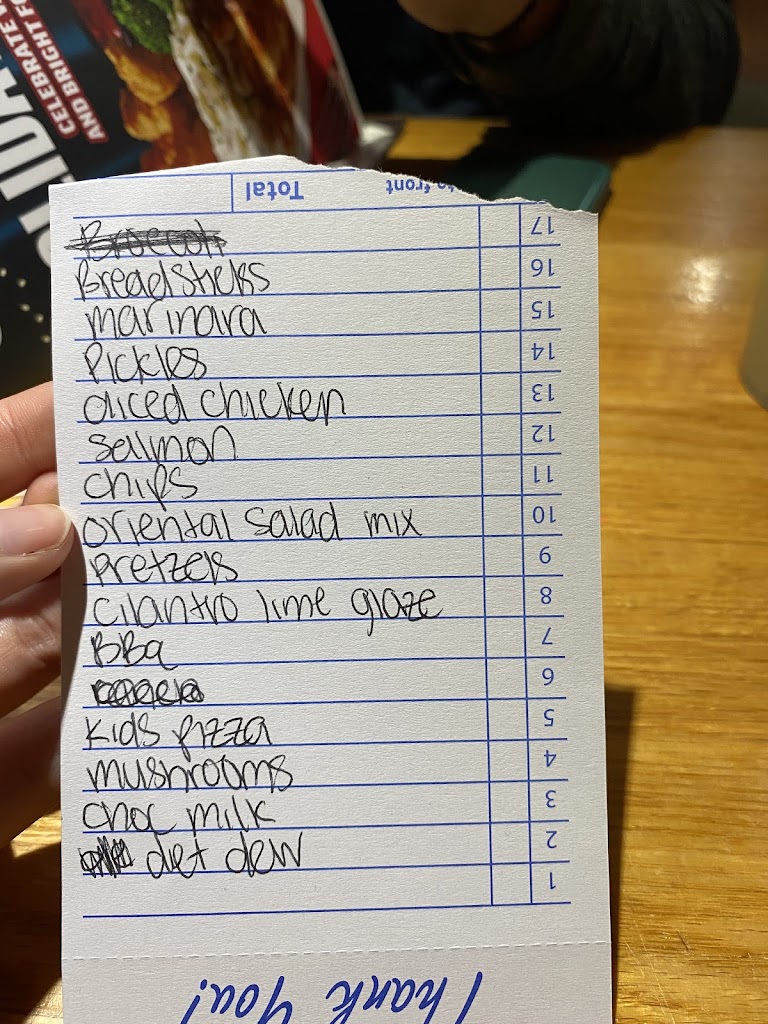 CELEBRATE
AND BRIGHT F
LIDA
to front
Total
Broccoli
17
Breadsticks
16
marinara
15
Pickles
14
diced chicken
13
salmon
12
chips
11
oriental salad mix
10
Pretzels
9
cilantro lime glaze
8
BBq
7
6
kids pizza
5
mushrooms
4
choc milk
3
diet dew
2
1
Thank You!